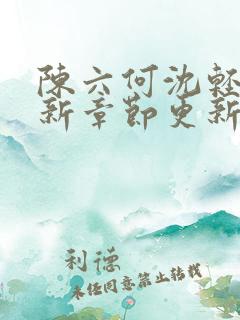 陳六何沈輕
新章節更新
利德
未经同意禁止转载